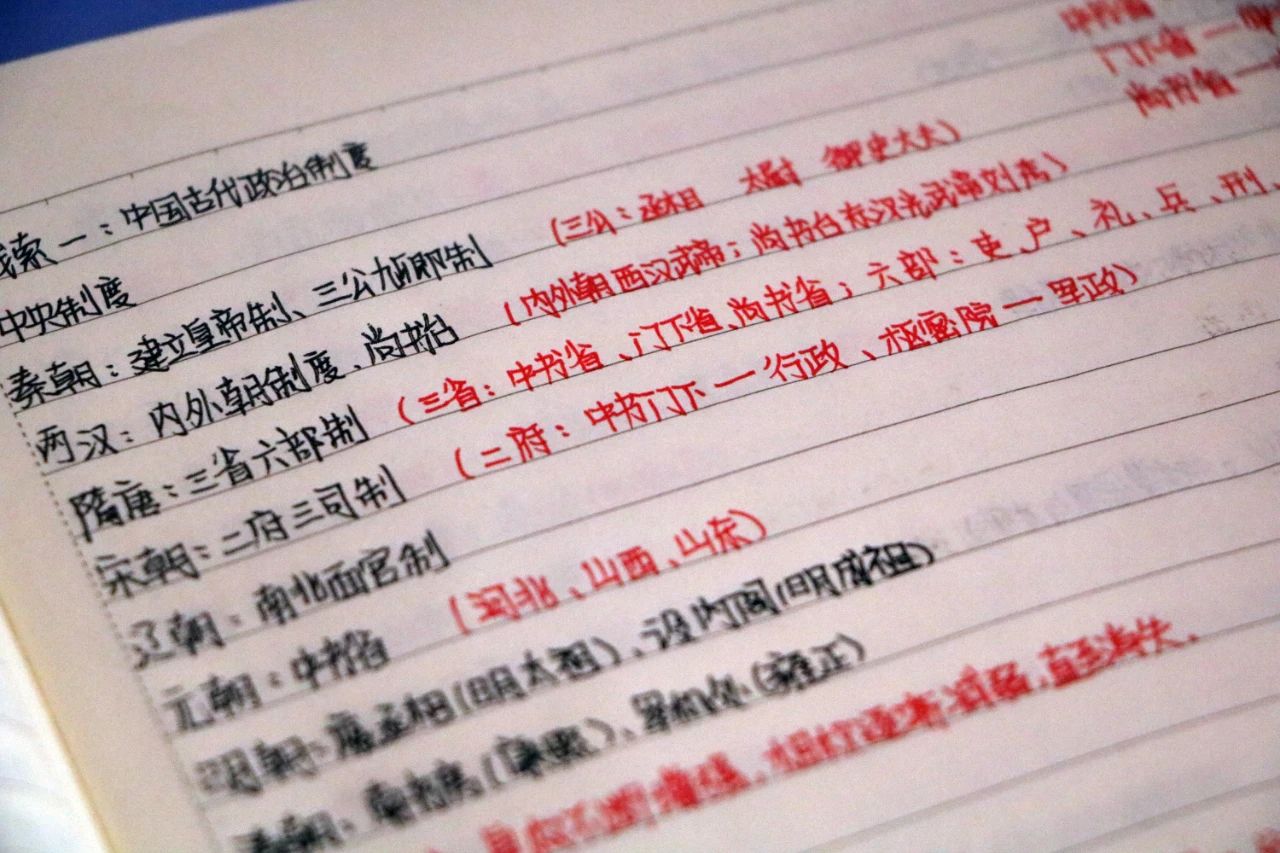 中书省
门下省一
尚书省一
线索一:中国古代政治制度
中央制度
秦朝:建立皇帝制、三公九卿制 (三公:丞相 太尉 御史大夫)
两汉:内外朝制度、尚书台 (内外朝西汉武帝;尚书台东汉光武帝刘秀)
隋唐:三省六部制 (三省:中书省、门下省、尚书省;六部:吏、户、礼、兵、刑、
宋朝:二府三司制 (二府:中书门下一行政、枢密院一军政)
辽朝:南北面官制
元朝:中书省 (河北、山西、山东)
明朝:废丞相(明太祖)、设内阁(明成祖)
清朝:南书房(康熙)、军机处(雍正)
皇权不断增强,相权逐渐削弱,直至消失.